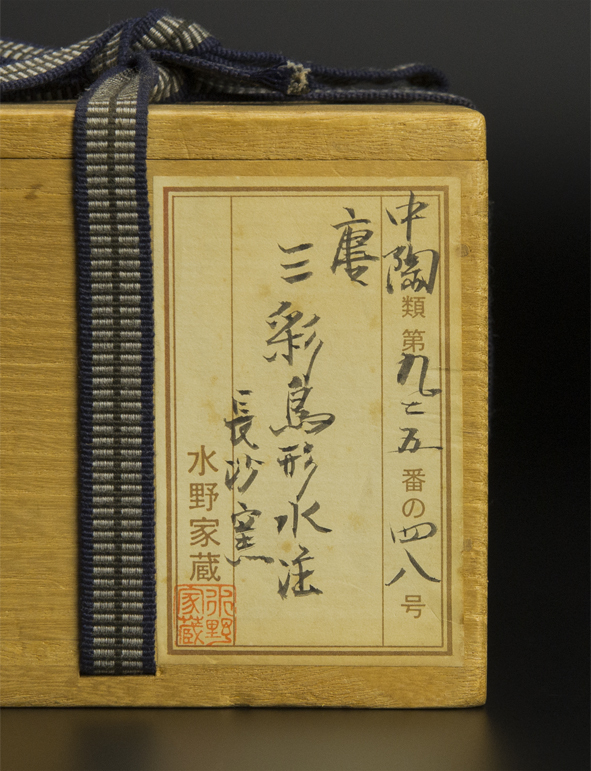 中陶類第九七五番の四八号
唐
三彩鳥形水注
長沙窯
水野家蔵
水野家蔵